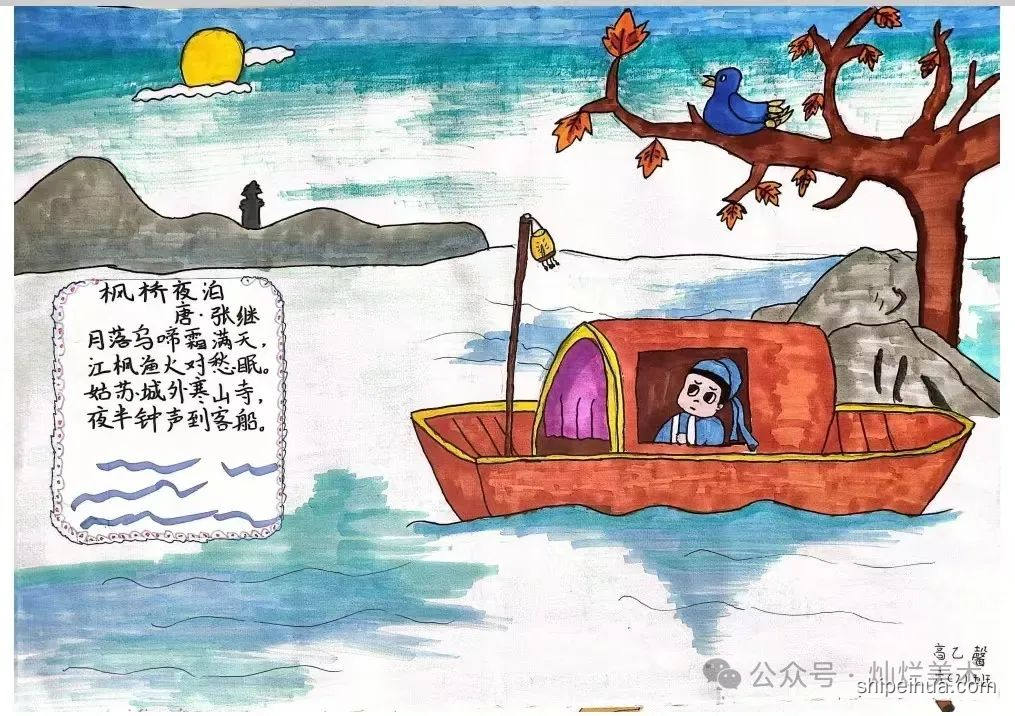 枫桥夜泊
唐·张继
月落乌啼霜满天，
江枫渔火对愁眠。
姑苏城外寒山寺，
夜半钟声到客船。
高乙馨
公众号·灿烂美术
shipeihua.com